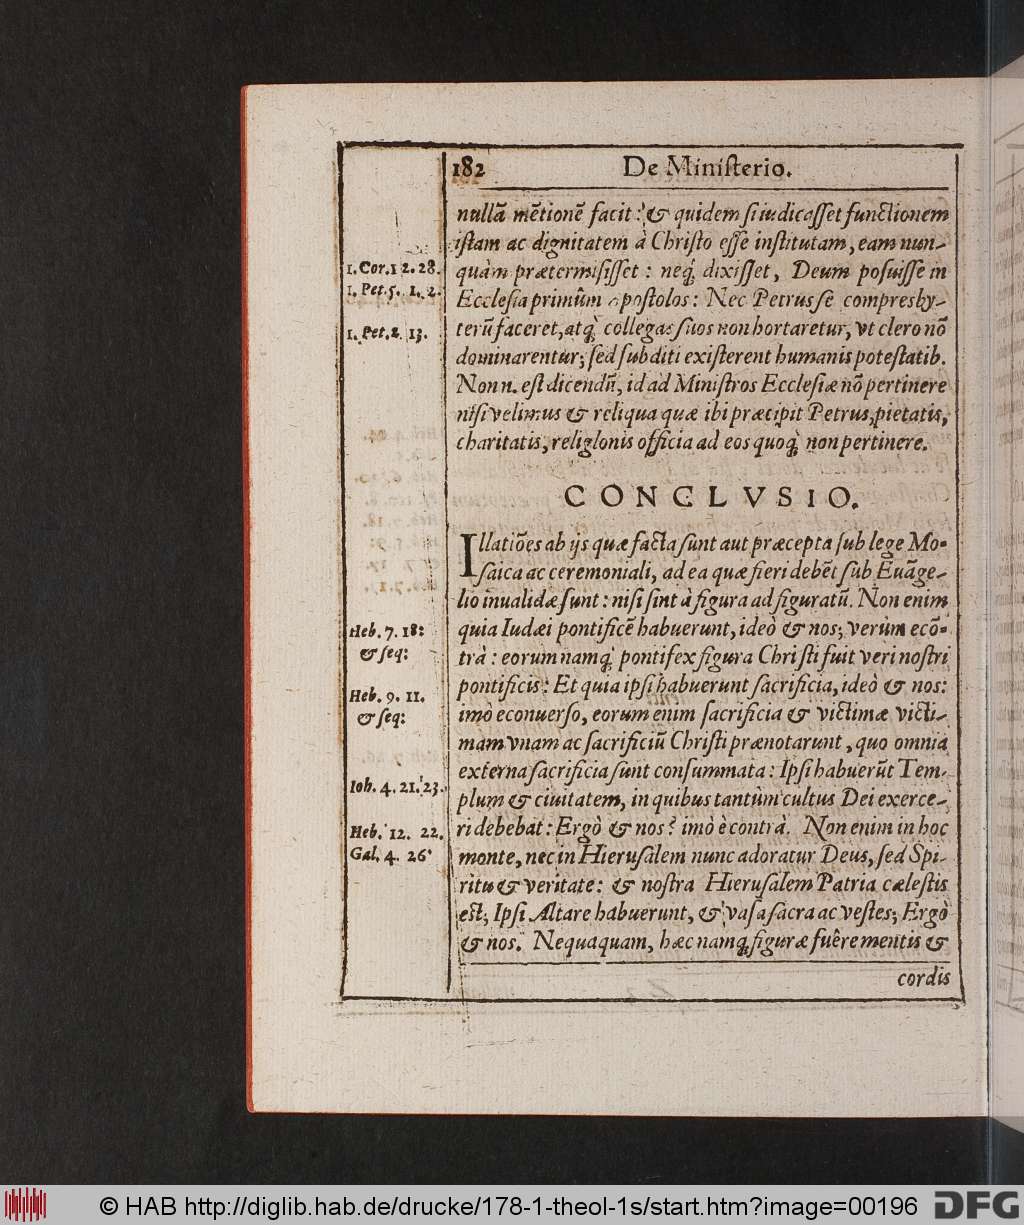 182 De Miniſterio.
nullā mētionē facit: & quidem ſi iudicaſſet functionem
iſtam ac dignitatem à Chriſto eſſe inſtitutam, eam nun-
1. Cor. 12. 28.
quàm prætermiſiſſet: neq; dixiſſet, Deum poſuiſſe in
1. Pet. 5. 1. 2.
Eccleſia primûm apoſtolos: Nec Petrus ſe compresby-
1. Pet. 2. 13.
terũ faceret, atq; collegas ſuos non hortaretur, vt clero nō
dominarentur; ſed ſubditi exiſterent humanis poteſtatib.
Non n. eſt dicendũ, id ad Miniſtros Eccleſiæ nō pertinere
niſi velimus & reliqua quæ ibi præcipit Petrus, pietatis,
charitatis, religionis officia ad eos quoq; non pertinere.
CONCLVSIO.
Illatiōes ab ijs quæ facta ſunt aut præcepta ſub lege Mo-
ſaica ac ceremoniali, ad ea quæ fieri debēt ſub Euāge-
lio inualidæ ſunt: niſi ſint à figura ad figuratũ. Non enim
Heb. 7. 18:
quia Iudæi pontificē habuerunt, ideò & nos; verùm ecō-
& ſeq:
trà: eorum namq; pontifex figura Chriſti fuit veri noſtri
Heb. 9. 11.
pontificis: Et quia ipſi habuerunt ſacrificia, ideò & nos:
& ſeq:
imò econuerſo, eorum enim ſacrificia & victimæ victi-
mam vnam ac ſacrificiũ Chriſti prænotarunt, quo omnia
externa ſacrificia ſunt conſummata: Ipſi habuerũt Tem-
Ioh. 4. 21. 23.
plum & ciuitatem, in quibus tantùm cultus Dei exerce-
Heb. 12. 22.
ri debebat: Ergò & nos? imò è contrà. Non enim in hoc
Gal. 4. 26.
monte, nec in Hieruſalem nunc adoratur Deus, ſed Spi-
ritu & veritate: & noſtra Hieruſalem Patria cæleſtis
eſt; Ipſi Altare habuerunt, & vaſa ſacra ac veſtes; Ergò
& nos. Nequaquam, hæc namq; figuræ fuêre mentis &
cordis
© HAB http://diglib.hab.de/drucke/178-1-theol-1s/start.htm?image=00196 DFG